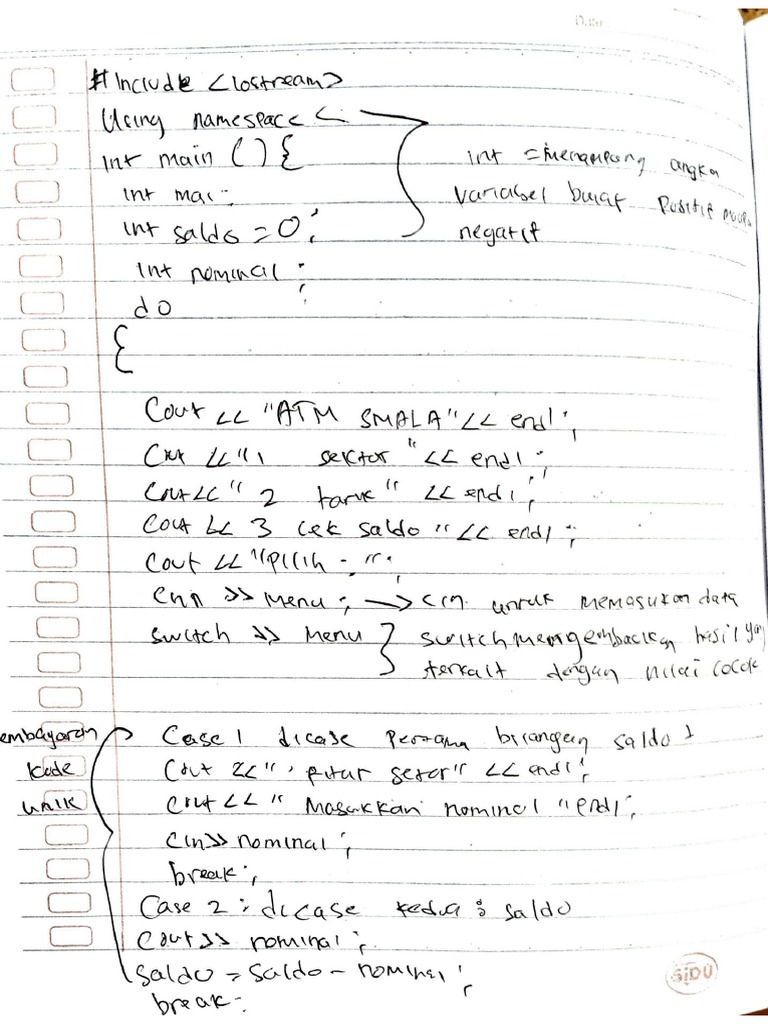 #Include <Iostream>
Using namespace <
int main () {
int mai:
int saldo = 0;
int nominal;
do
{
int = menampung angka
variabel bulat positif maupu
negatif
Cout << "ATM SMALA" << endl;
Cout << "1 sektor" << endl;
Cout << " 2 tarik" << endl;
Cout << 3 cek saldo " << endl;
Cout << "pilih : ";
cin >> Menu; → cin untuk memasukan data
switch >> Menu } switch mengembalikan hasil yan
terkait dengan nilai cocok
embayaran
kode
unik
Case 1 dicase pertama bilangan saldo 1
Cout << " fitur setor" << endl;
Cout << " Masukkan nominal " endl;
Cin >> nominal;
break;
Case 2 : dicase kedua : saldo
Cout >> nominal;
saldo = saldo - nominal;
break:
SIDU